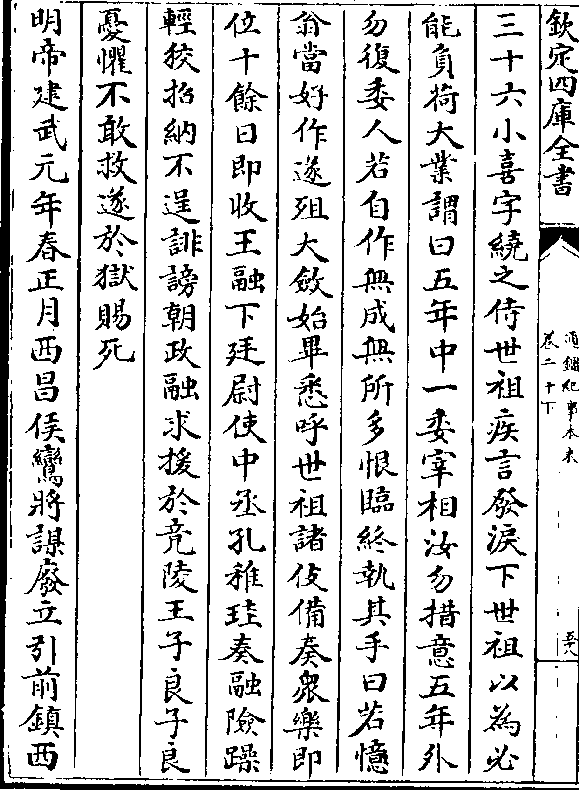 欽定四庫全書
通鑑紀事本末
卷二十下
三十六小喜字繞之侍世祖疾言發淚下世祖以為必
能負荷大業謂曰五年中一委宰相汝勿措意五年外
勿復委人若自作無成無所多恨臨終執其手曰若憶
翁當好作遂殂大斂始畢悉呼世祖諸伎備奏衆樂即
位十餘日即收王融下廷尉使中丞孔稚珪奏融險躁
輕狡招納不逞誹謗朝政融求援於竟陵王子良子良
憂懼不敢救遂於獄賜死
明帝建武元年春正月西昌侯鸞將謀廢立引前鎮西